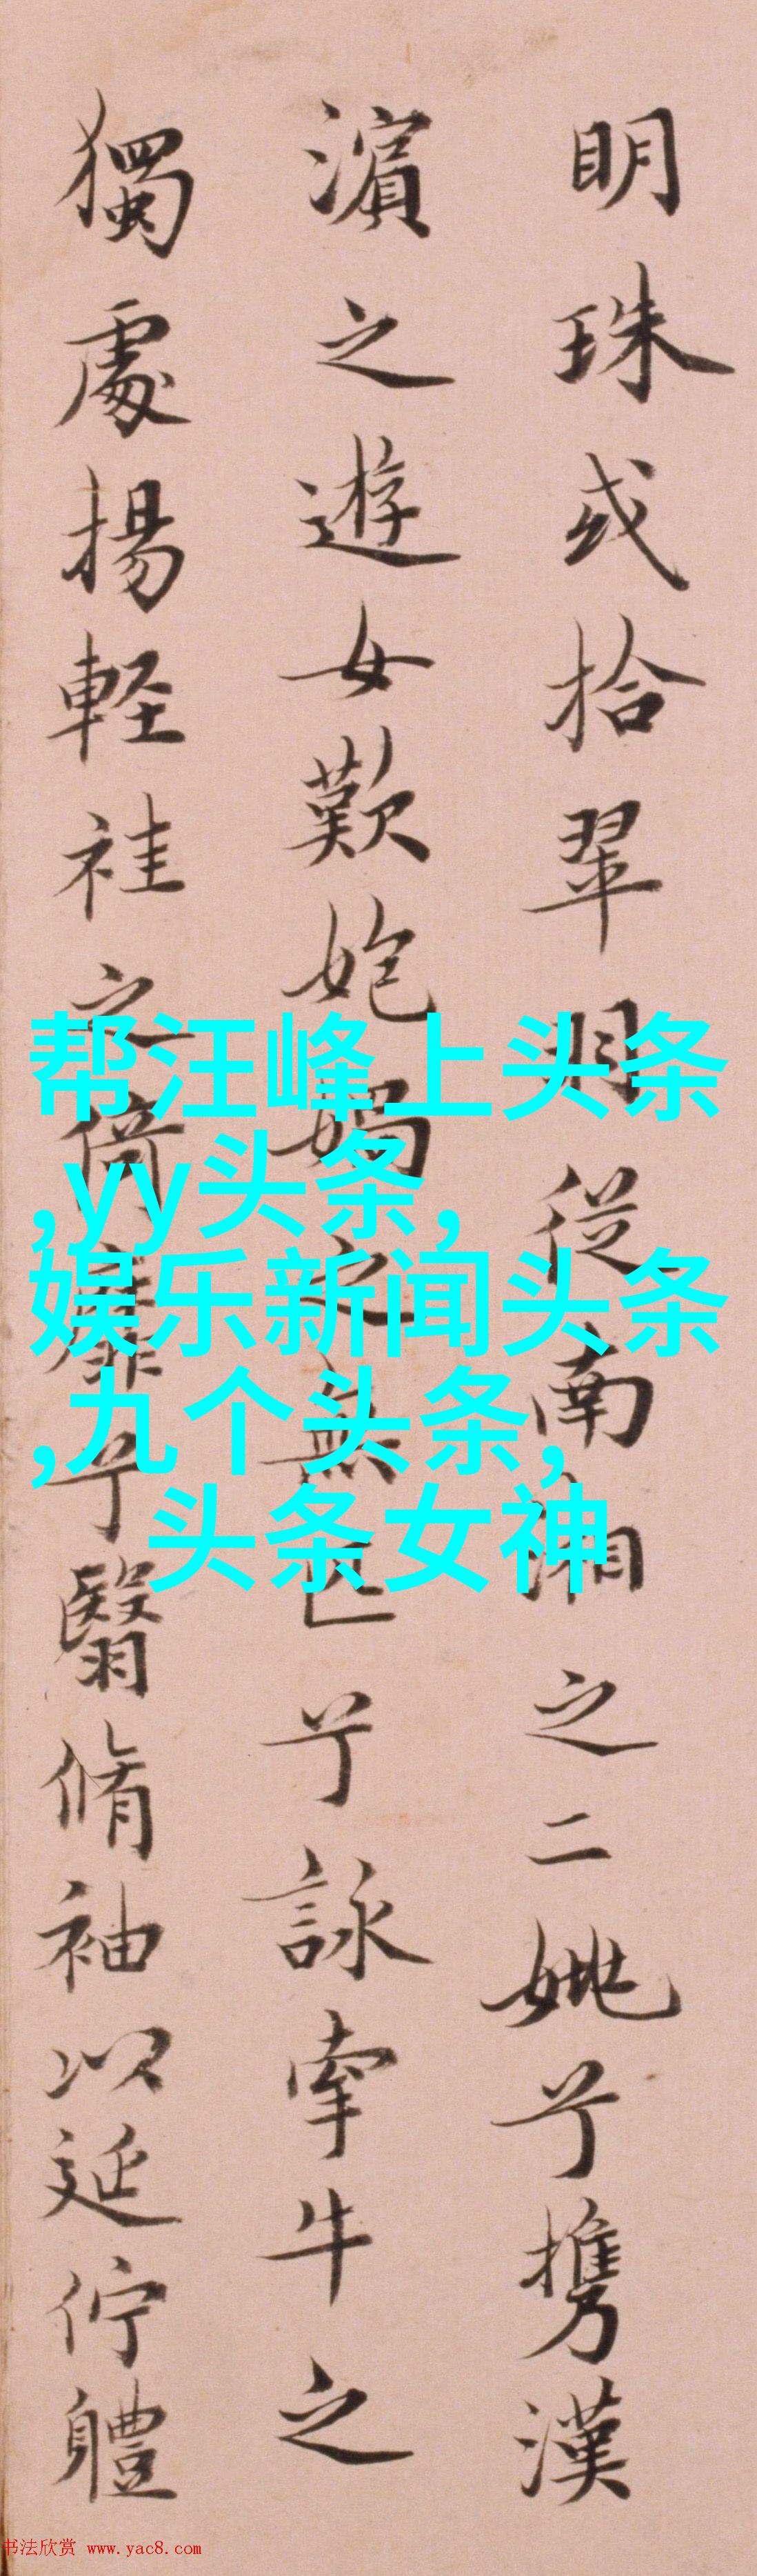 明珠或拾翠羽從南湘之二兮携漢
濵之遊女歎媧之無匹兮詠牽牛之
獨處揚軽袿之倚靡兮翳脩袖以延佇體
帮汪峰上头条
,yy头条,
娱乐新闻头条
,九个头条,
头条女神
书法欣赏 www.yac8.com